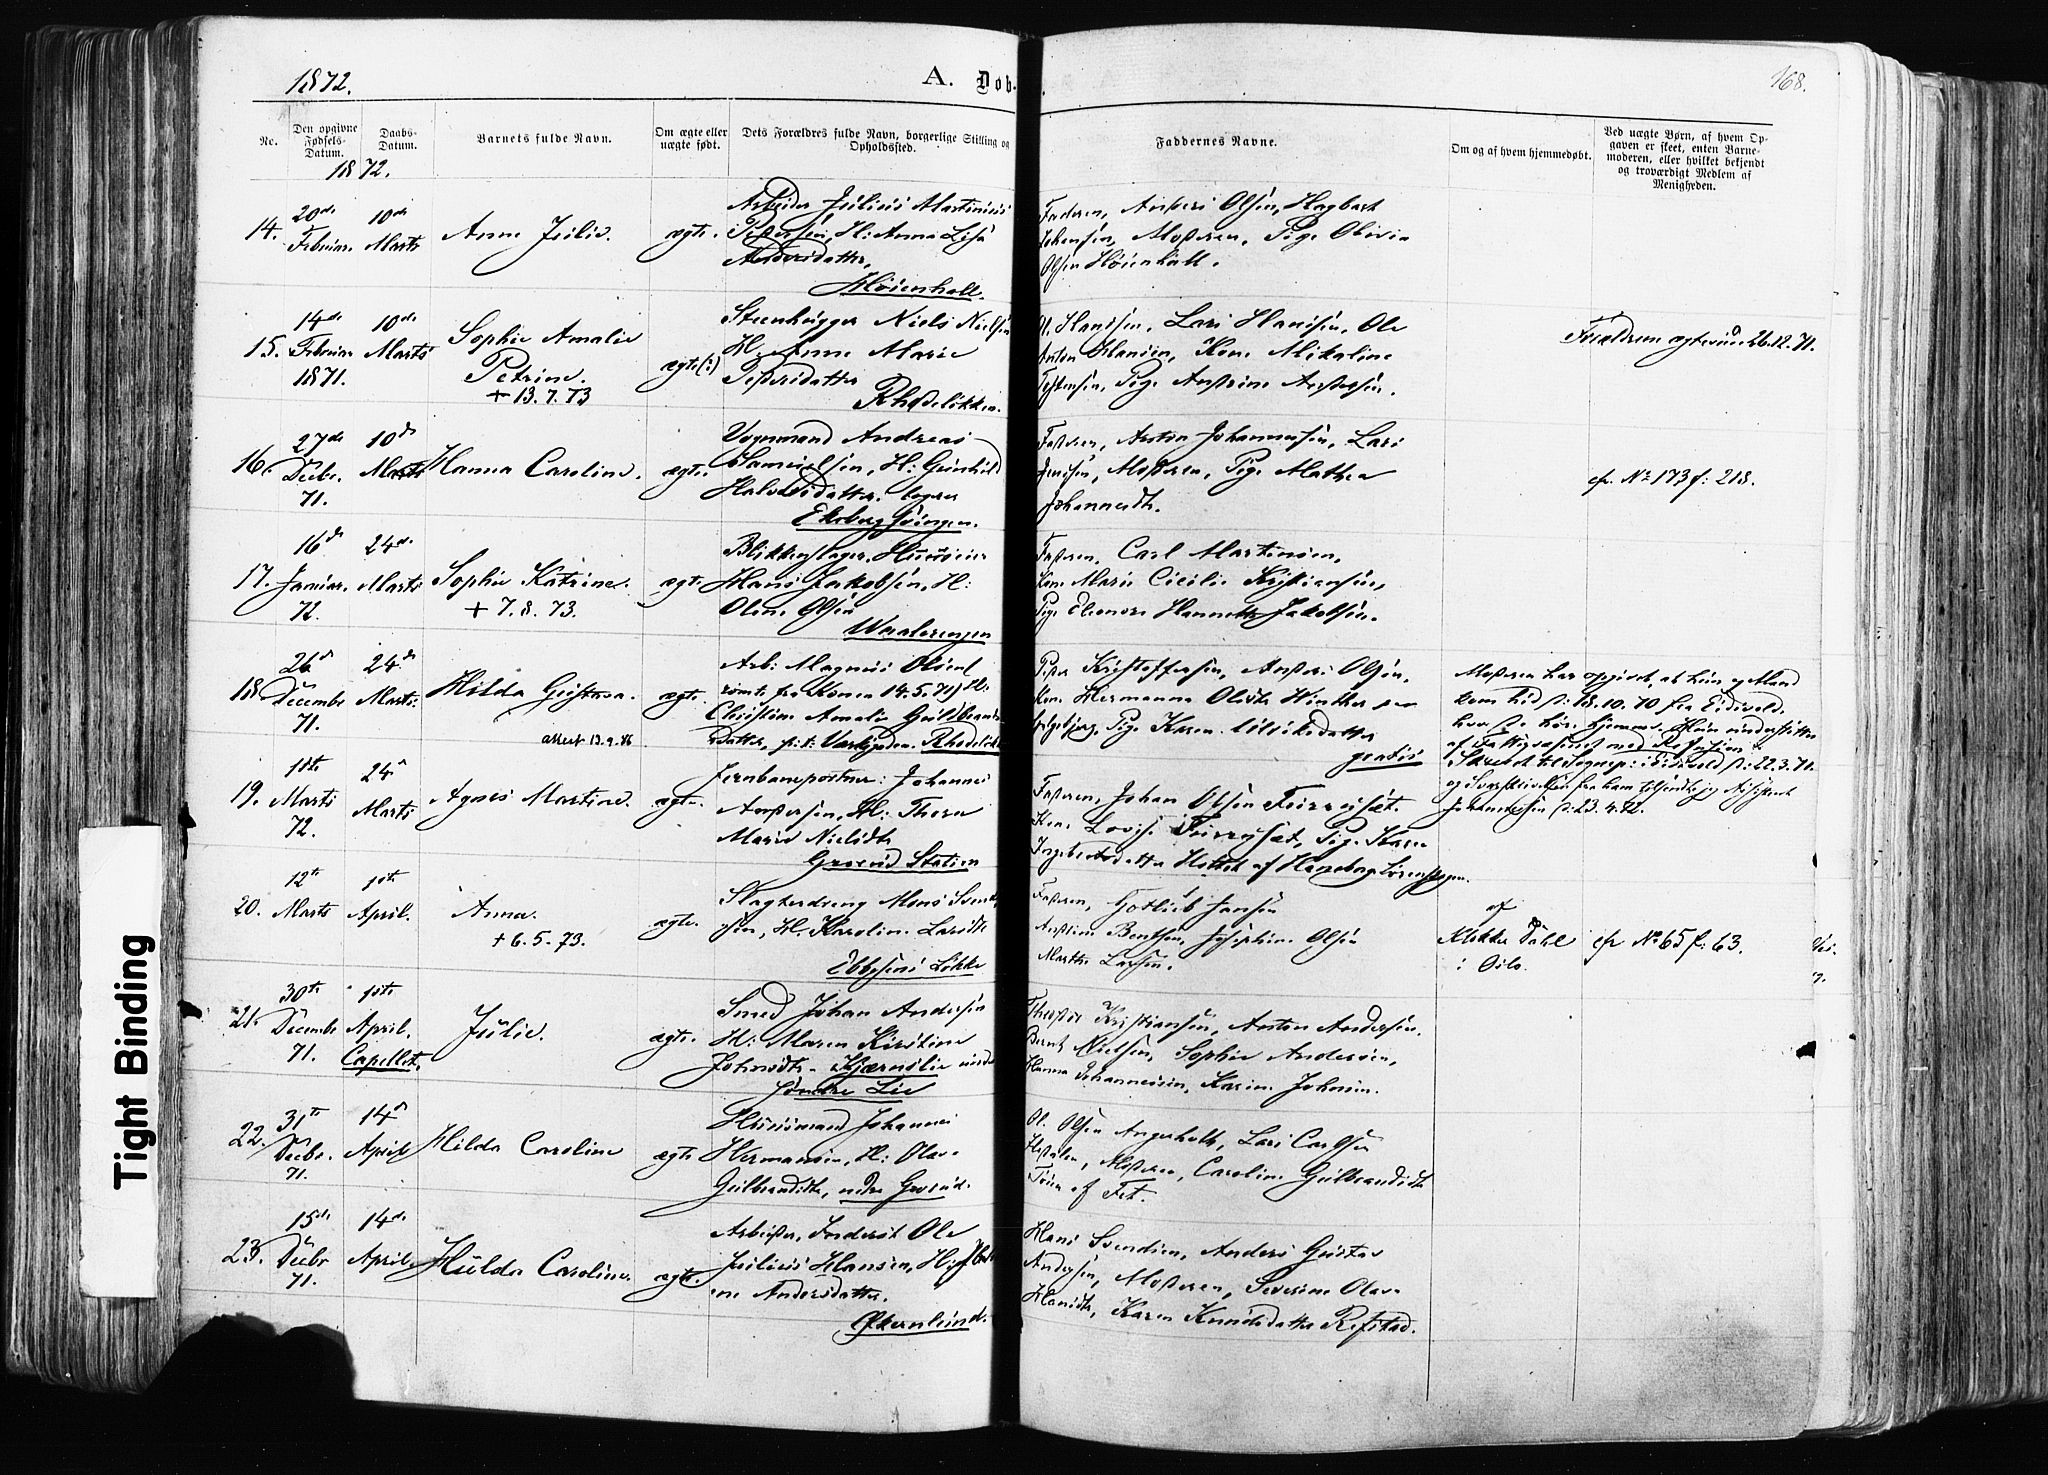 1872.
A. Døb
168.
No.
Den opgivne Fødsels-Datum.
Daabs-Datum.
Barnets fulde Navn.
Om ægte eller uægte født.
Dets Forældres fulde Navn, borgerlige Stilling og Opholdssted.
Faddernes Navne.
Om og af hvem hjemmedøbt.
Ved uægte Børn, af hvem Opgaven er skeet, enten Barnemoderen, eller hvilket bekjendt og troværdigt Medlem af Menigheden.
1872.
14.
20de Februar.
10de Marts
Anne Julie.
ægte.
Arbeider Julius Martinius
Pedersen, H: Anna Lisa
Andersdatter,
Høienhall.
Faderen, Anders Olsen, Hagbart
Johansen, Moderen, Pige Olivia
Olsen Høienhall.
15.
14de Februar 1871.
10de Marts
Sophie Amalie
Petrine.
+ 13.7.73
ægte(:)
Steenhugger Niels Nielsen
H. Anne Marie
Pedersdatter
Rhodeløkken.
Ol. Hansen, Lars Hansen, Ole
Anton Hansen, Kone Mikaline
Pige Andrine Andersen.
Forældrene ægteviede 26.12.71.
16.
27de Decbr. 71.
10de Marts
Hanna Caroline.
ægte.
Vognmand Andreas
Samuelsen, H: Gunhild
Halvorsdatter.
Ekeberg Svingen.
Faderen, Anton Johannesen, Lars
Jensen, Moderen, Pige Mathea
Johannesdtr.
cfr. No 173 f: 218.
17.
16de Januar. 72.
24de Marts
Sophie Katrine.
+ 7.8.73.
ægte
Blikkenslager, Huuseier
Hans Jakobsen, H:
Oline Olsen
Waalerengen
Faderen, Carl Martinsen,
Kone Marie Cicilie Kristiansen,
Pige Eleonore Hannette Jakobsen.
18.
26de December 71.
24de Marts.
Hilda Gustava.
attest 13.9.86
ægte.
Arb: Magnus Olsen (
rømt fra Konen 14.5.71) H:
Christine Amalie Guldbrands
datter, Rhodeløk
Peder Kristoffersen, Anders Olsen,
Kone Hermanna Olivia Winther
Pige Karen
gratis
Moderen har opgivet, at hun og Mand
kom hid d: 18.10.70 fra Eidsvold.
hvor de høre hjemme. Hun understøttes
af Fattigvæsenet med Refusion
Skrevet til Sognep: i Eidsvold d: 22.3.72.
og Svarskrivelsen fra ham tilsendt
Johannesen d: 23.4.72.
19.
10de Marts 72.
24de Marts
Agnes Martine.
ægte.
Jernbaneportner: Johannes
Andersen, H: Thora
Marie Nielsdtr
Grorud Station
Faderen, Johan Olsen Furuset.
Kone Lovise Furuset, Pige Karen
Ingebretsdatter
20.
12te Marts
1ste April.
Anna.
+ 6.5.73.
ægte.
Slagterdreng Mons Svend
sen, H. Karoline Larsdtr
Ebbesens Løkke
Faderen, Gotlieb Jansen
Andrine Bentsen, Josephine Olsen
Marthe Larsen.
af
Klokker Dahl
i Oslo.
cfr No 65 f: 63.
21.
30te December 71.
1ste April.
Capellet.
Julie.
ægte.
Smed Johan Andersen
H: Maren Kirstine
Johnsdtr. Kjærnslie under
søndre Lie
Theodor Kristiansen, Anton Andersen.
Bernt Nielsen, Sophie Andersen,
Hanna Johannessen, Karine Johnsen.
22.
31te Decbr. 71.
14de April
Hilda Caroline
ægte
Huusmand Johannes
Hermansen, H: Olave
Gulbrandsdtr, nedre Grorud.
Ol. Olsen Angerholt, Lars Carlsen
Moderen, Caroline Gulbrandsdtr
af Fet.
23.
15de Decbr 71.
14de April.
Hulda Caroline.
ægte.
Arbeider, Inderst Ole
Julius Hansen, H:
ne Andersdatter.
Økernlund.
Hans Svendsen, Anders Gustav
Andersen, Moderen, Severine Olave
Hansdtr, Karen Knudsdatter Refstad.
Tight Binding